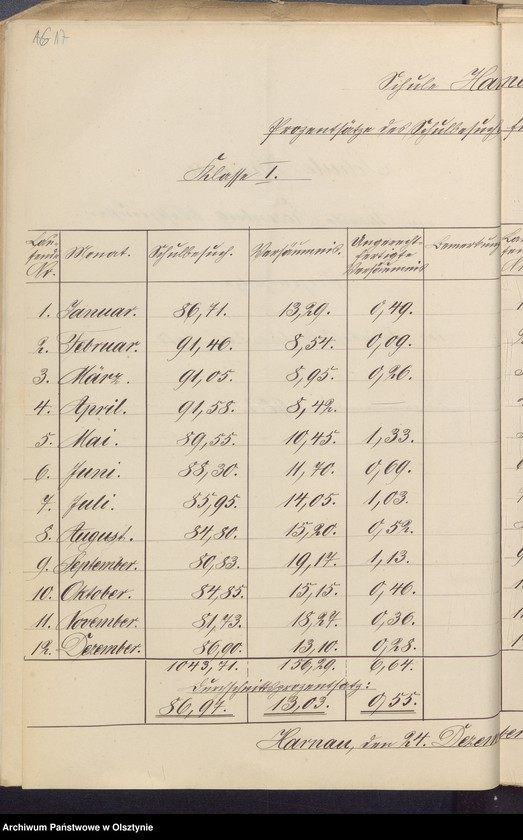 16 17
Schule
Prozentsätze des Schulbesuchs
Klasse I.
Lau-fende Nr. Monat. Schulbesuch. Versäumnis. Ungerecht-fertigte Versäumnis Bemerkung
1. Januar. 86,71. 13,29. 0,49.
2. Februar. 91,46. 8,54. 0,09.
3. März. 91,05. 8,95. 0,26.
4. April. 91,58. 8,42. —
5. Mai. 89,55. 10,45. 1,33.
6. Juni. 88,30. 11,70. 0,69.
7. Juli. 85,95. 14,05. 1,03.
8. August. 84,80. 15,20. 0,52.
9. September. 80,83. 19,17. 1,13.
10. Oktober. 84,85. 15,15. 0,46.
11. November. 81,73. 18,27. 0,36.
12. Dezember. 86,00. 13,10. 0,28.
1043,71. 156,29. 6,64.
Durchschnittsprozentsatz:
86,97. 13,03. 0,55.
Harnau, den 24. Dezem
Archiwum Państwowe w Olsztynie